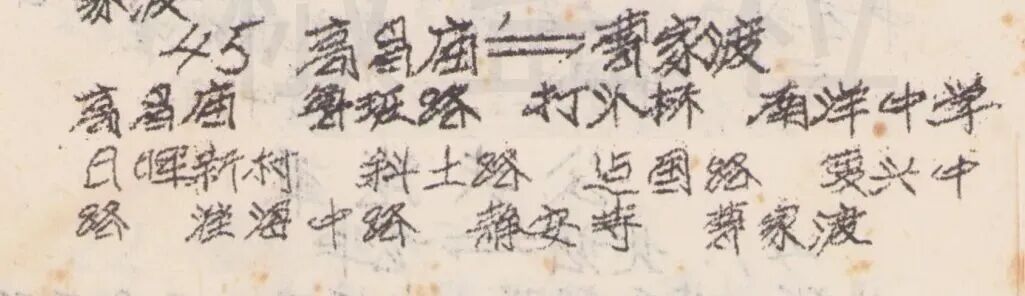 家渡
45 高昌庙⇌曹家渡
高昌庙 鲁班路 打浦桥 南洋中学
日晖新村 斜土路 路 复兴中
路 淮海中路 静安寺 曹家渡